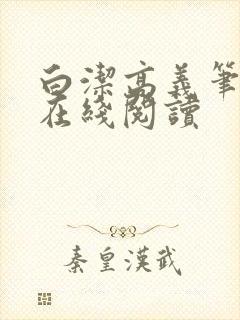 白潔高義筆
在綫閱讀
秦皇漢武